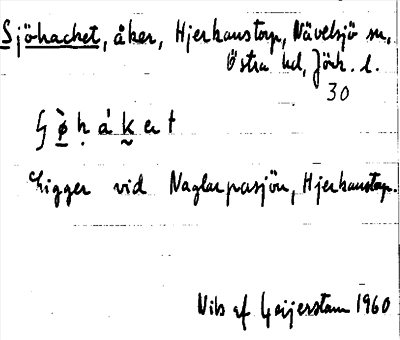 Sjöhachet, åker, Hjerkanstorp, Nävelsjö sn,
Östra hd, Jönk. l.
30
Ligger vid Naglarpasjön, Hjerkanstorp.
Nils af Geijerstam 1960